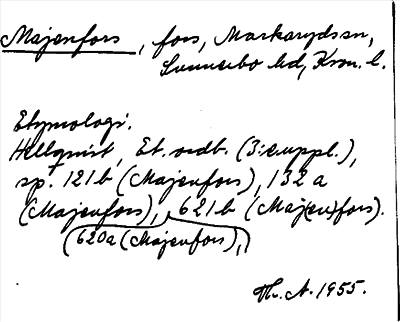 Majenfors, fors, Markaryds sn,
Sunnerbo hd, Kron. l.
Etymologi.
Hellquist, Et. ordb. (3:e uppl.),
sp. 121 b (Majenfors), 132 a
(Majenfors), 621 b (Maj(en)fors).
(620 a (Majenfors),)
Th. A. 1955.